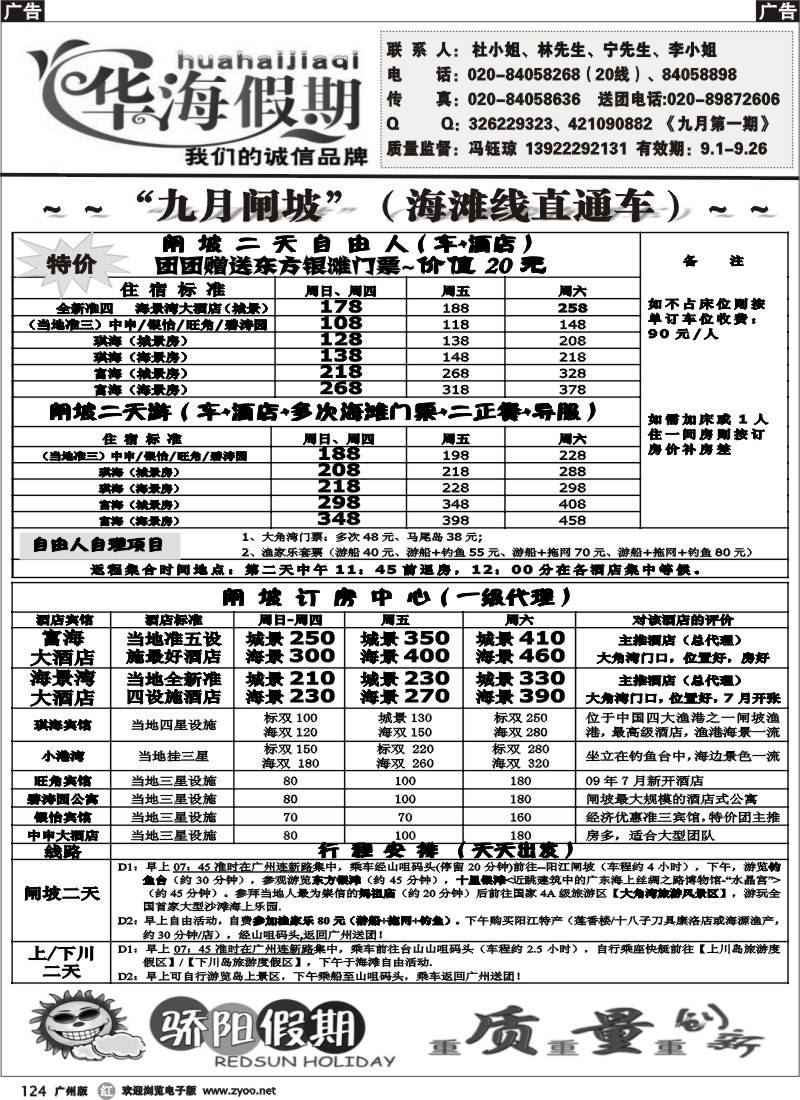 广告
广告
huahaijiaqi
华海假期
我们的诚信品牌
联 系 人：杜小姐、林先生、宁先生、李小姐
电 话：020-84058268（20线）、84058898
传 真：020-84058636 送团电话:020-89872606
Q Q：326229323、421090882 《九月第一期》
质量监督：冯钰琼 13922292131 有效期：9.1-9.26
~ ~ “九月闸坡”（海滩线直通车）~ ~
特价
闸坡二天自由人（车+酒店）
团团赠送东方银滩门票~价值 20 元
备 注
住 宿 标 准 周日、周四 周五 周六
全新准四 海景湾大酒店（城景） 178 188 258
（当地准三）中申/银怡/旺角/碧涛园 108 118 148
琪海（城景房） 128 138 208
琪海（海景房） 138 148 218
富海（城景房） 218 268 328
富海（海景房） 268 318 378
如不占床位则按
单订车位收费：
90 元/人
闸坡二天游（车+酒店+多次海滩门票+二正餐+导服）
住 宿 标 准 周日、周四 周五 周六
（当地准三）中申/银怡/旺角/碧涛园 188 198 228
琪海（城景房） 208 218 288
琪海（海景房） 218 228 298
富海（城景房） 298 348 408
富海（海景房） 348 398 458
如需加床或 1 人
住一间房则按订
房价补房差
自由人自理项目
1、大角湾门票：多次 48 元、马尾岛 38 元;
2、渔家乐套票（游船 40 元、游船+钓鱼 55 元、游船+拖网 70 元、游船+拖网+钓鱼 80 元）
返程集合时间地点：第二天中午 11：45 前退房，12：00 分在各酒店集中等候。
闸 坡 订 房 中 心（一级代理）
酒店宾馆 酒店标准 周日-周四 周五 周六 对该酒店的评价
富海 当地准五设 城景 250 城景 350 城景 410 主推酒店（总代理）
大酒店 施最好酒店 海景 300 海景 400 海景 460 大角湾门口，位置好，房好
海景湾 当地全新准 城景 210 城景 230 城景 330 主推酒店（总代理）
大酒店 四设施酒店 海景 230 海景 270 海景 390 大角湾门口，位置好，7 月开张
琪海宾馆 当地四星设施 标双 100 城景 130 标双 250 位于中国四大渔港之一闸坡渔
海双 120 海双 150 海双 280 港，最高级酒店，渔港海景一流
小港湾 当地挂三星 标双 150 标双 220 标双 280 坐立在钓鱼台中，海边景色一流
海双 180 海双 260 海双 320
旺角宾馆 当地三星设施 80 100 180 09 年 7 月新开酒店
碧涛园公寓 当地三星设施 80 100 180 闸坡最大规模的酒店式公寓
银怡宾馆 当地三星设施 70 70 160 经济优惠准三宾馆，特价团主推
中申大酒店 当地三星设施 80 100 180 房多，适合大型团队
线路 行 程 安 排 （天天出发）
闸坡二天
D1：早上 07：45 准时在广州连新路集中，乘车经山咀码头(停留 20 分钟)前往--阳江闸坡（车程约 4 小时），下午，游览钓
鱼台（约 30 分钟），参观游览东方银滩（约 45 分钟），十里银滩<近眺建筑中的广东海上丝绸之路博物馆-“水晶宫”>
（约 45 分钟）。参拜当地人最为崇信的妈祖庙（约 20 分钟）后前往国家 4A 级旅游区【大角湾旅游风景区】，游玩全
国首家大型沙滩海上乐园.
D2：早上自由活动，自费参加渔家乐 80 元（游船+拖网+钓鱼）。下午购买阳江特产（莲香楼/十八子刀具康洛店或海源渔产，
约 30 分钟/店），经山咀码头,返回广州送团！
上/下川
二天
D1：早上 07：45 准时在广州连新路集中，乘车前往台山山咀码头（车程约 2.5 小时），自行乘座快艇前往【上川岛旅游度
假区】/【下川岛旅游度假区】，下午于海滩自由活动.
D2：早上可自行游览岛上景区，下午乘船至山咀码头，乘车返回广州送团！
骄阳假期
REDSUN HOLIDAY
重质重量重创新
124 广州版 红 欢迎浏览电子版 www.zyoo.net